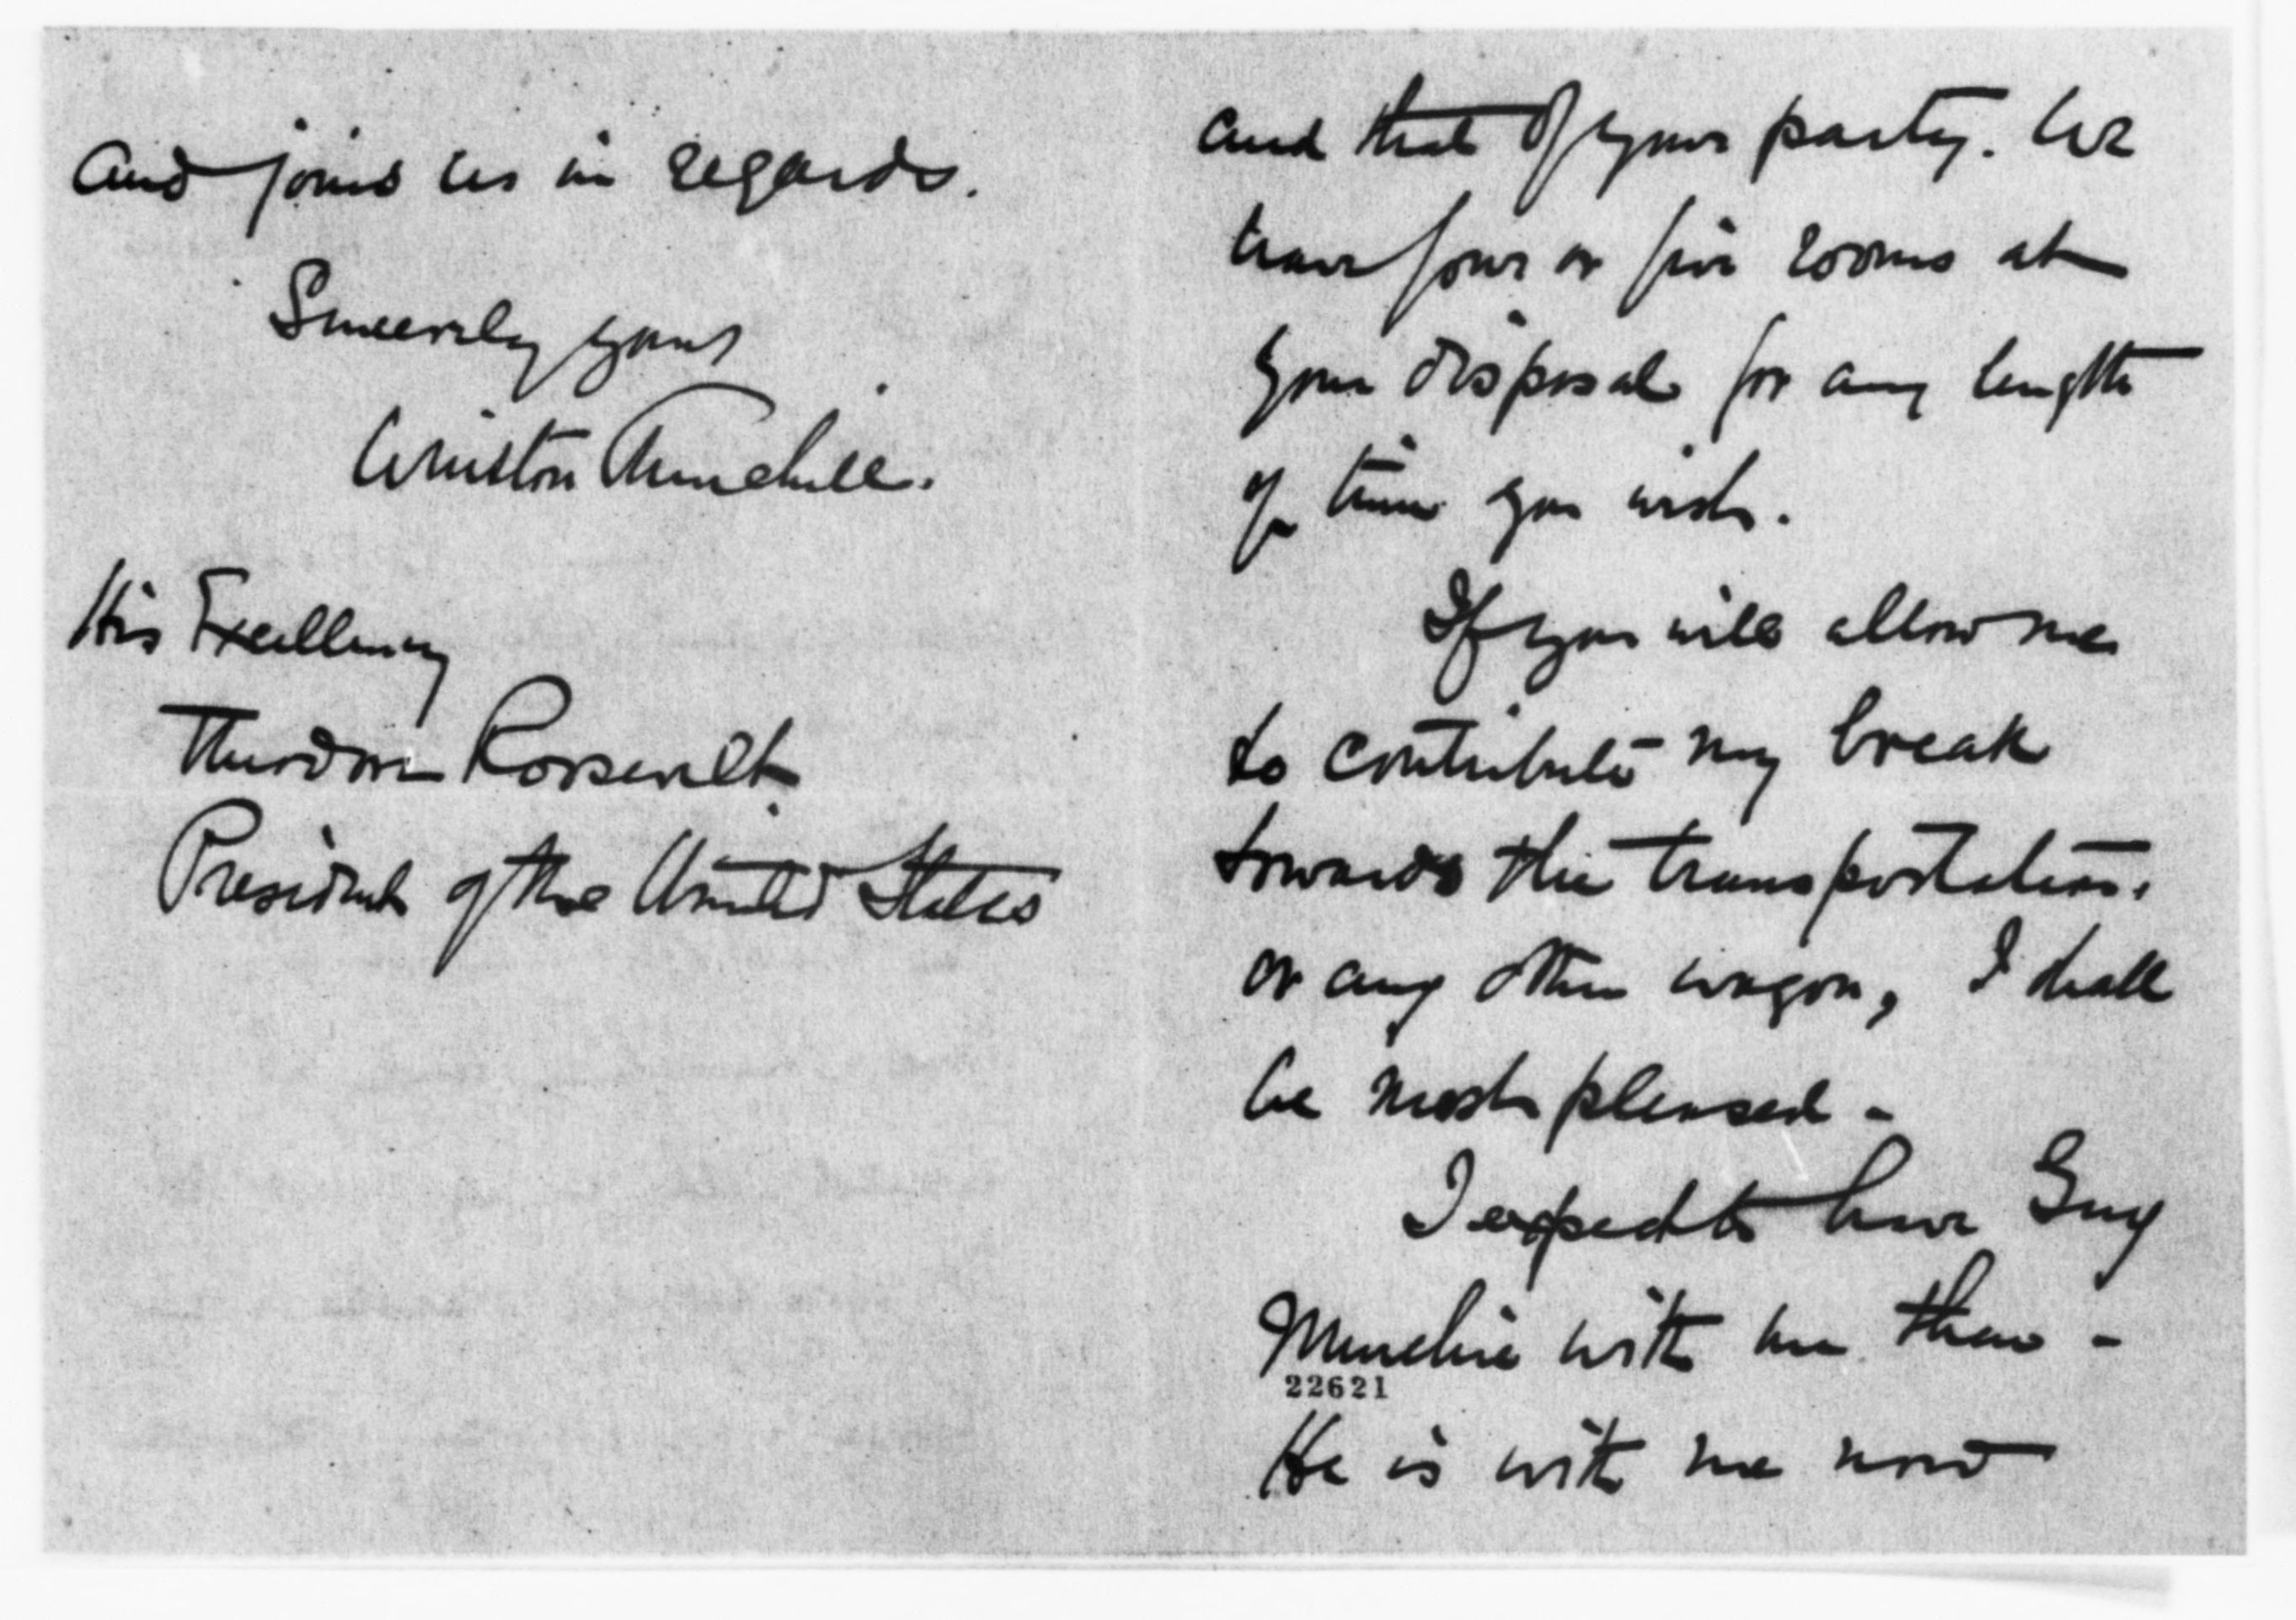 and that of your party. We
have four or five rooms at
your disposal for any length
of time you wish.
If you will allow me
to contribute my break
towards the transportation,
or any other wagon, I shall
be most pleased -
I expect to have Guy
Murchie with me then -
22621
He is with me now
and joins us in regards.
Sincerely yours
Winston Churchill.
His Excellency
Theodore Roosevelt
President of the United States